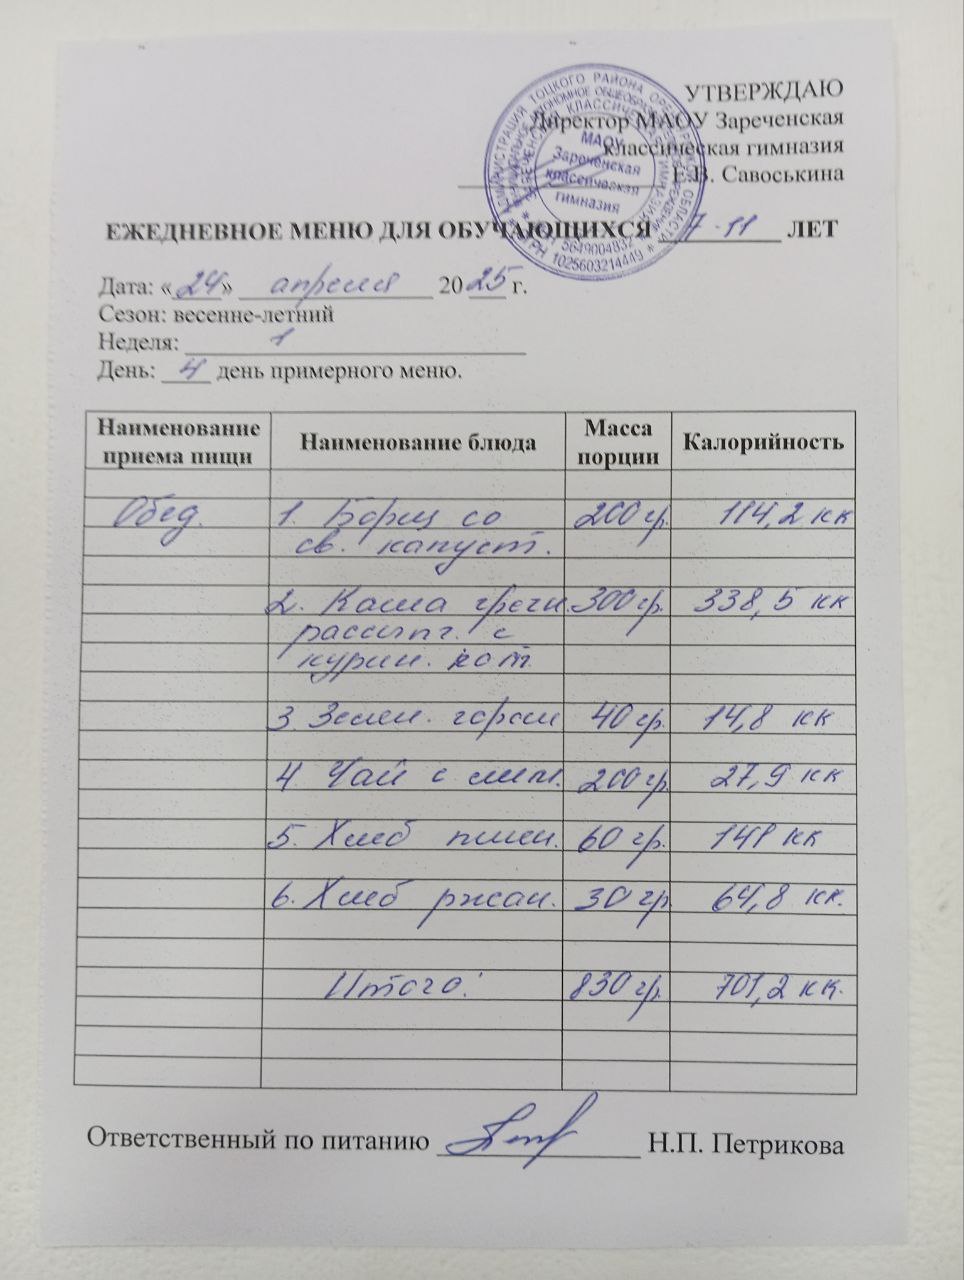 УТВЕРЖДАЮ
Директор МАОУ Зареченская
классическая гимназия
Е.В. Савоськина
МАОУ
Зареченская
классическая
гимназия
5649004832
ОГРН 1025603214449
ЕЖЕДНЕВНОЕ МЕНЮ ДЛЯ ОБУЧАЮЩИХСЯ 7-11 ЛЕТ
Дата: «24» апреля 2025 г.
Сезон: весенне-летний
Неделя: 1
День: 4 день примерного меню.
Наименование приема пищи Наименование блюда Масса порции Калорийность
Обед. 1. Борщ со 200 гр. 114,2 кк
св. капуст.
2. Каша гречн. 300 гр. 338,5 кк
рассыпч. с
курин. кот.
3. Зелен. горош 40 гр. 14,8 кк
4. Чай с лим. 200 гр. 27,9 кк
5. Хлеб пшен. 60 гр. 141 кк
6. Хлеб ржан. 30 гр 64,8 кк.
Итого: 830 гр. 701,2 кк.
Ответственный по питанию Н.П. Петрикова